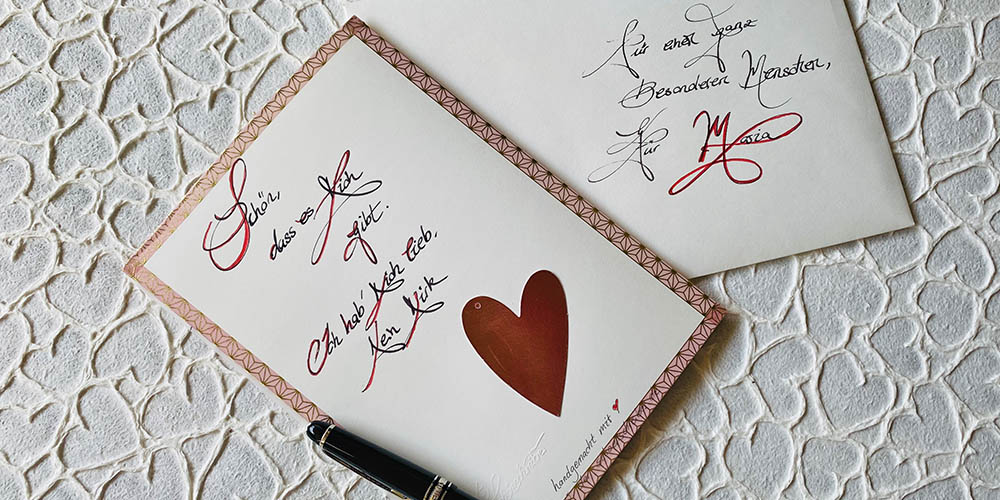 Schön,
dass es Dich
gibt.
Ich hab' Dich lieb,
Dein Dirk
handgemacht mit
Für einen ganz
Besonderen Menschen,
Für Maria